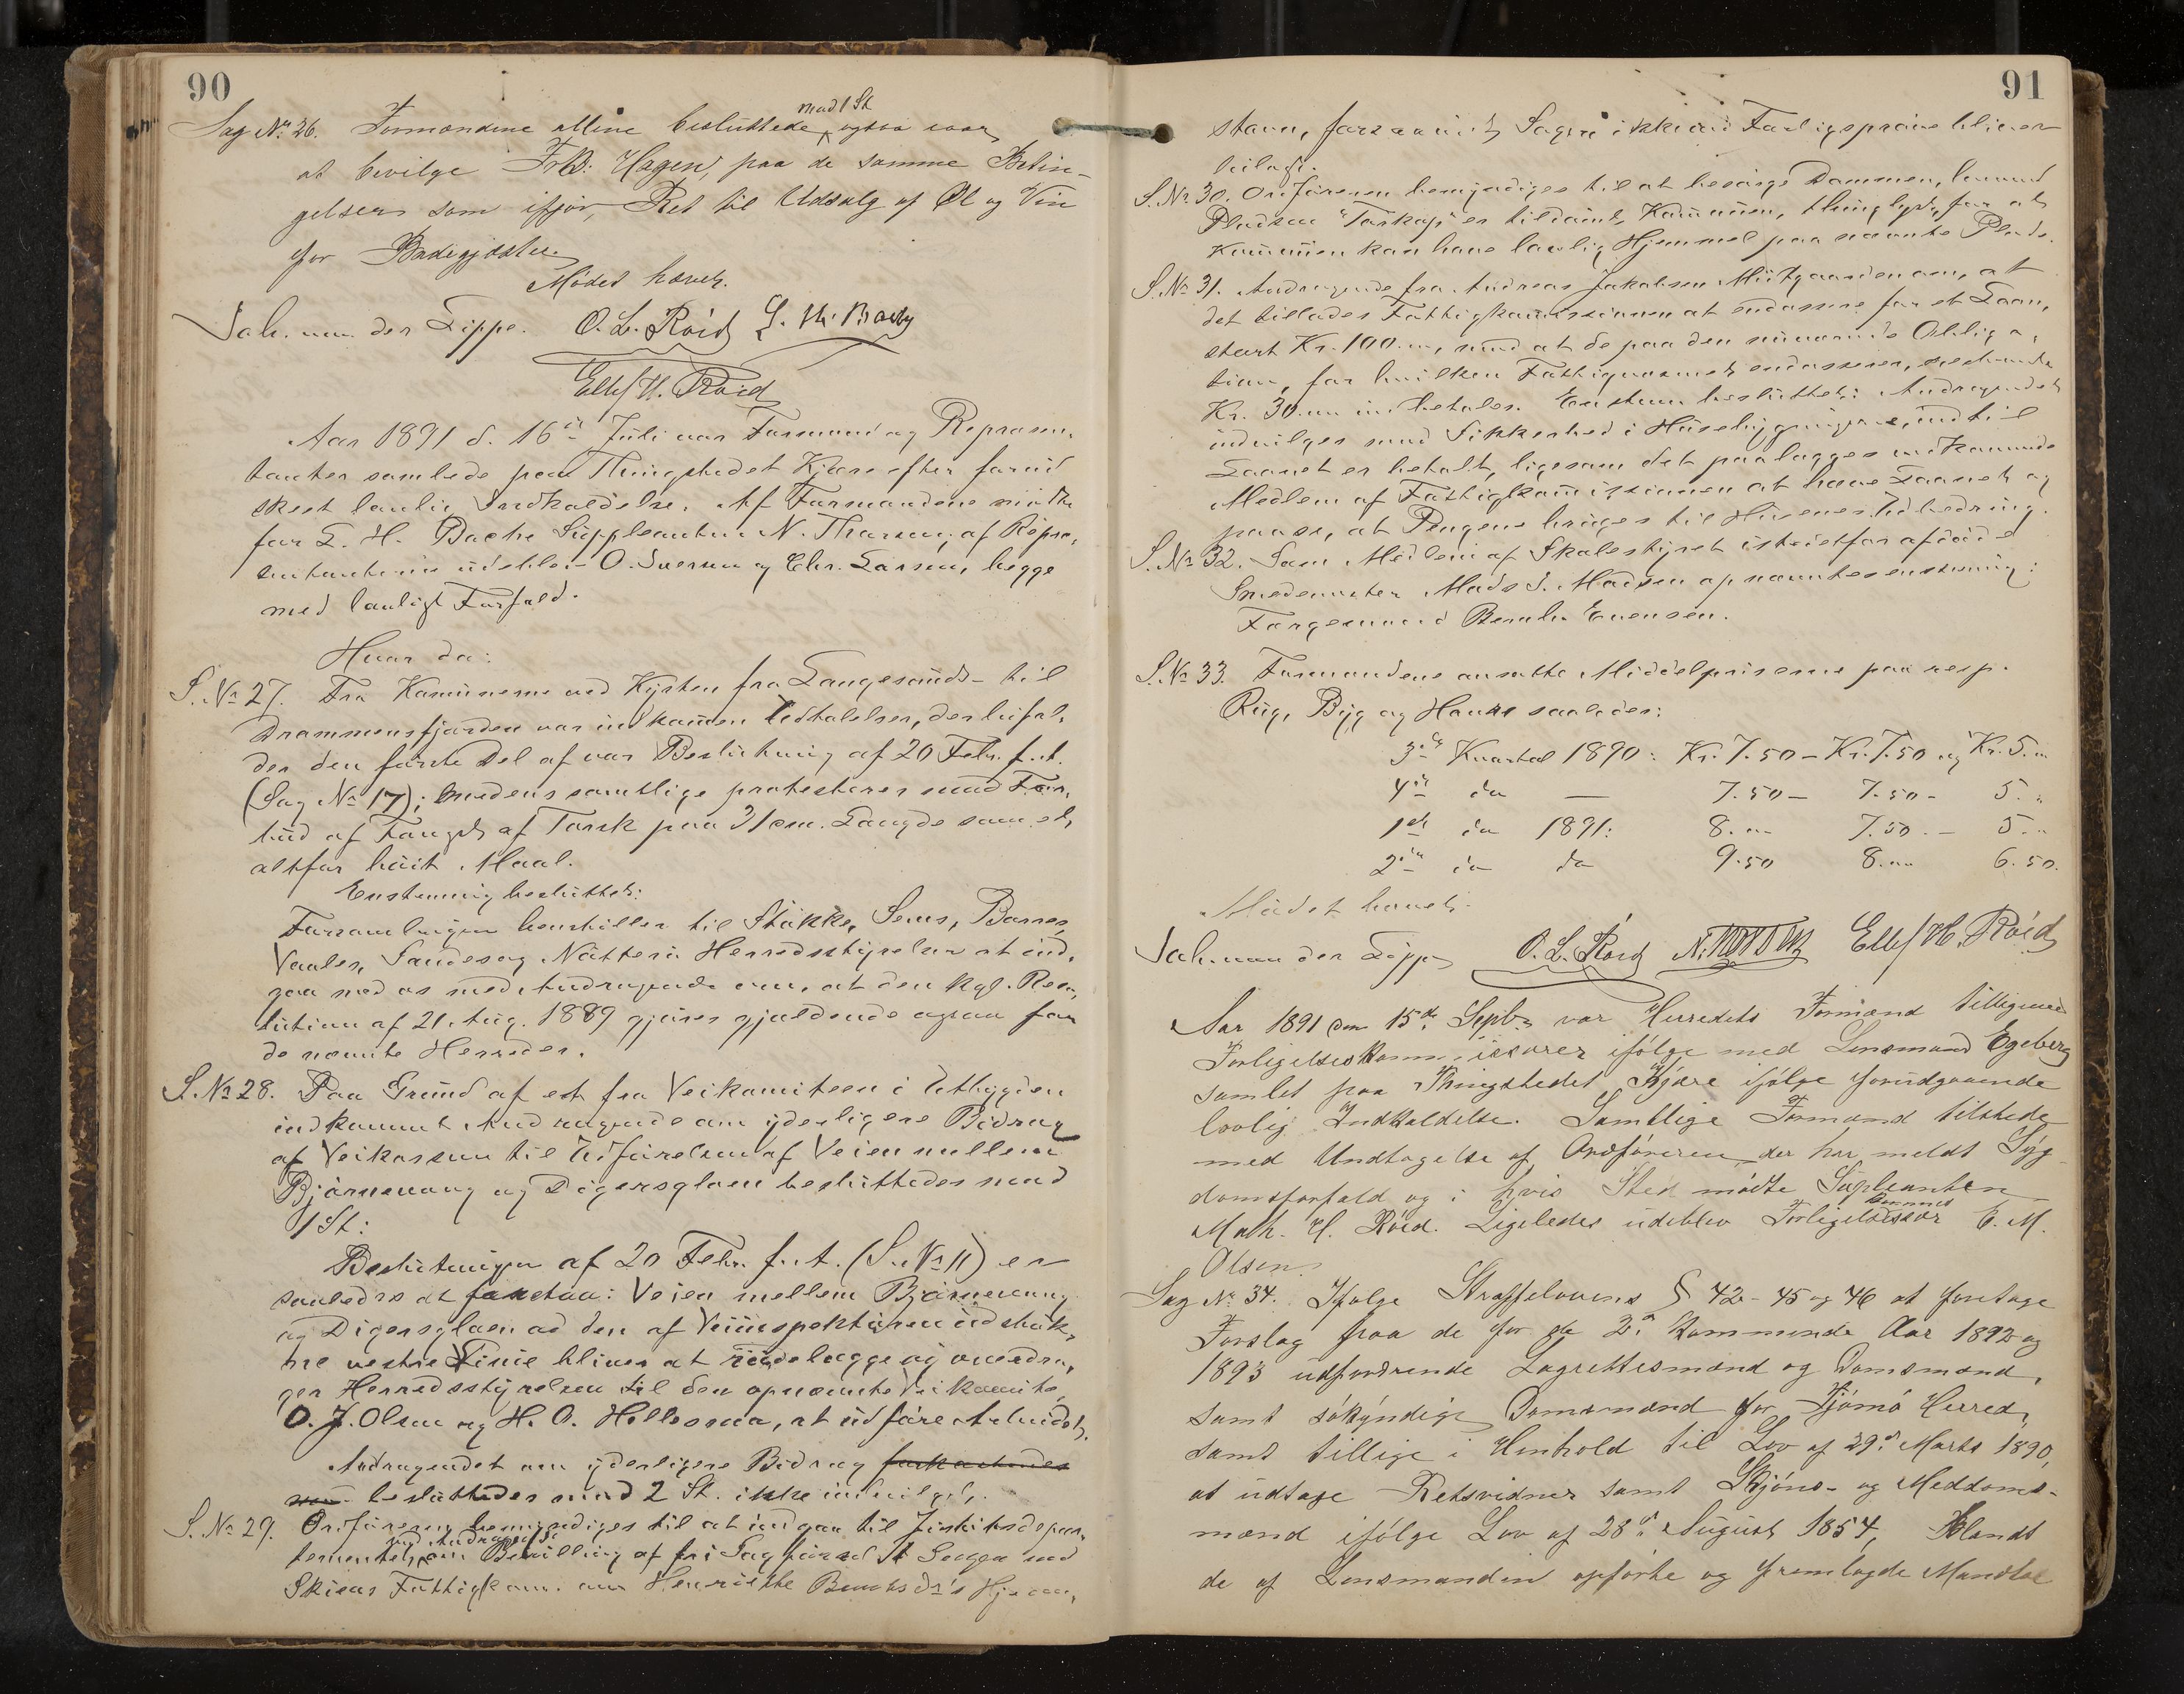 90
med 1 St
Sag No 26. Formændene alline besluttede ogsaa iaar
at bevilge Frk: Hagen, paa de samme Betin-
gelser som ifjor, Ret til Udsalg af Øl og Vin
for Badegjæster.
Mødet hævet.
Joh. von der Lippe. O. L. Röed L. H. Bache
Ellef H. Röed
Aar 1891 d. 16de Juli var Formænd og Repræsen-
tanter samlede paa Thingstedet Kjære efter forud
skeet lovlig Indkaldelse. Af Formændene mødte
for L. H. Bache Suppleanten N. Thorsen, af Repræ-
sentanterne udeblev O. Iversen og Chr. Larsen, begge
med lovligt Forfald.
Hvor da:
S. No 27. Fra Kommunerne ved Kysten fra Langesunds- til
Drammensfjorden var indkommen Udtalelser, der bifal-
der den første Del af vor Beslutning af 20 Febr. f. A.
(Sag No 17); medens samtlige protesterer mod For-
bud af Fangst af Torsk paa 31 cm. Længde som et
altfor høit Maal.
Enstemmig besluttet:
Forsamlingen henstiller til Stokke, Sems, Borre,
Vaale, Sande og Nøtterø Herredsstyrelser at ind-
gaa med os med Andragende om, at den kgl. Reso-
lution af 21 Aug. 1889 gjøres gjældende ogsaa for
de nævnte Herreder.
S. No 28. Paa Grund af et fra Veikomiteen i Utbygden
indkommet Andragende om yderligere Bidrag
af Veikassen til Udførelsen af Veien mellem
Bjørnevaag og Digersglaen besluttedes mod
1 St:
Beslutningen af 20 Febr. f. A. (S. No 11) er
saaledes at forstaa: Veien mellem Bjørnevaag
og Digersglaen ad den af Veiinspektøren udstuk-
ne vestre Linie bliver at rodelægge og overdra-
ger Herredsstyrelsen til den opnævnte Veikomite
O. J. Olsen og H. O. Hellesmo, at udføre Arbeidet.
Andragendet om yderligere Bidrag forkastedes
besluttedes mod 2 St. ikke indvilget.
S. No 29. Ordføreren bemyndiges til at indgaa til Justitsdepar-
med Andragende
tementet om Bevilling af fri Sagførsel i Sagen mod
Skiens Fattigkom. om Henriette Berntsdr's Hjem-
91
stavn, forsaavidt Sagen ikke ved Forligsprøve bliver
bilagt.
S. No 30. Ordføreren bemyndiges til at besørge Dommen, hvorved
Pladsen "Torskop" er tildømt Kommunen, thinglyst, for at
Kommunen kan have lovlig Hjemmel paa nævnte Plads.
S. No 31. Andragende fra Andreas Jakobsen Midtgaarden om, at
det tillades Fattigkommissionen at endossere for et Laan,
stort Kr. 100.00, mod at de paa den nuværende Obliga-
tion, for hvilken Fattigvæsenet endosserer, resterende
Kr. 30.00 indbetales. Enstem. besluttet: Andragendet
indvilges mod Sikkerhed i Husebygningerne, indtil
Laanet er betalt, ligesom det paalægges vedkommende
Medlem af Fattigkommissionen at hæve Laanet og
paase, at Pengene bruges til Husenes Udbedring.
S. No 32. Som Medlem af Skolestyret istedetfor afdøde
Smedemester Mads S. Madsen opnævntes enstemmig:
Færgemand Bernh. Evensen.
S. No 33. Formændene ansatte Middelpriserne paa resp.
Rug, Byg og Havre saaledes:
3de Kvartal 1890: Kr. 7.50 – Kr. 7.50 og Kr. 5.00
4de do — 7.50 – 7.50 – 5.00
1ste do 1891: 8.00 – 7.50 – 5.00
2det do do 9.50 8.00 6.50.
Mødet hævet.
Joh. von der Lippe O. L. Röed Ellef H. Röed
Aar 1891 den 15de Septbr var Herredets Formænd tilligemed
Forligelseskommissærer ifølge med Lensmand Egeberg
samlet paa Thingstedet Kjære ifølge forudgaaende
lovlig Indkaldelse. Samtlige Formænd tilstede
med Undtagelse af Ordføreren der har meldt Syg-
domsforfald og i hvis Sted mødte Supleanten
Math. H. Röed. Ligeledes udeblev Forligelseskommissær E. M.
Olsen.
Sag No 34. Ifølge Straffelovens § 42 - 45 og 46 at foretage
Forslag paa de for de 2de kommende Aar 1892 og
1893 udfordrende Lagrettesmænd og Domsmænd,
samt søkyndige Domsmænd for Tjømø Herred,
samt tillige i Henhold til Lov af 29de Marts 1890,
at udtage Retsvidner samt Skjøns- og Meddoms-
mænd ifølge Lov af 28de August 1854, Blandt
de af Lensmanden opførte og fremlagde Mandtal